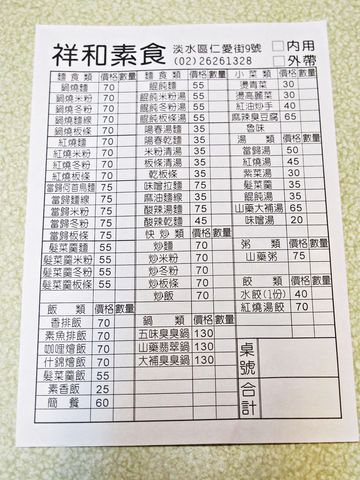 祥和素食
淡水區仁愛街9號
(02)26261328
□內用
□外帶
麵食類 價格 數量
鍋燒麵 70
鍋燒米粉 70
鍋燒冬粉 70
鍋燒麵線 70
鍋燒板條 70
紅燒麵 70
紅燒米粉 70
紅燒冬粉 70
紅燒板條 70
當歸何首烏麵 75
當歸麵線 75
當歸米粉 75
當歸冬粉 75
當歸板條 75
髮菜羹麵 55
髮菜羹米粉 55
髮菜羹冬粉 55
髮菜羹板條 55
飯類 價格 數量
香排飯 70
素魚排飯 70
咖哩燴飯 70
什錦燴飯 70
髮菜羹飯 55
素香飯 25
簡餐 60
麵食類 價格 數量
餛飩麵 55
餛飩米粉湯 55
餛飩冬粉湯 55
餛飩板條湯 55
陽春湯麵 35
陽春乾麵 35
米粉清湯 35
板條清湯 35
乾板條 35
味噌拉麵 75
麻油麵線 75
酸辣湯麵 75
酸辣乾麵 45
快炒類 價格 數量
炒麵 70
炒米粉 70
炒冬粉 70
炒板條 70
炒飯 70
鍋類 價格 數量
五味臭臭鍋 130
山藥翡翠鍋 130
大補臭臭鍋 130
小菜類 價格 數量
燙青菜 30
燙高麗菜 30
紅油炒手 40
麻辣臭豆腐 65
魯味
湯類 價格 數量
當歸湯 50
紅燒湯 45
紫菜湯 30
髮菜羹 35
餛飩湯 35
山藥大補湯 65
味噌湯 20
粥類 價格 數量
山藥粥 75
餃類 價格 數量
水餃(1份) 40
紅燒湯餃 70
桌號
合計